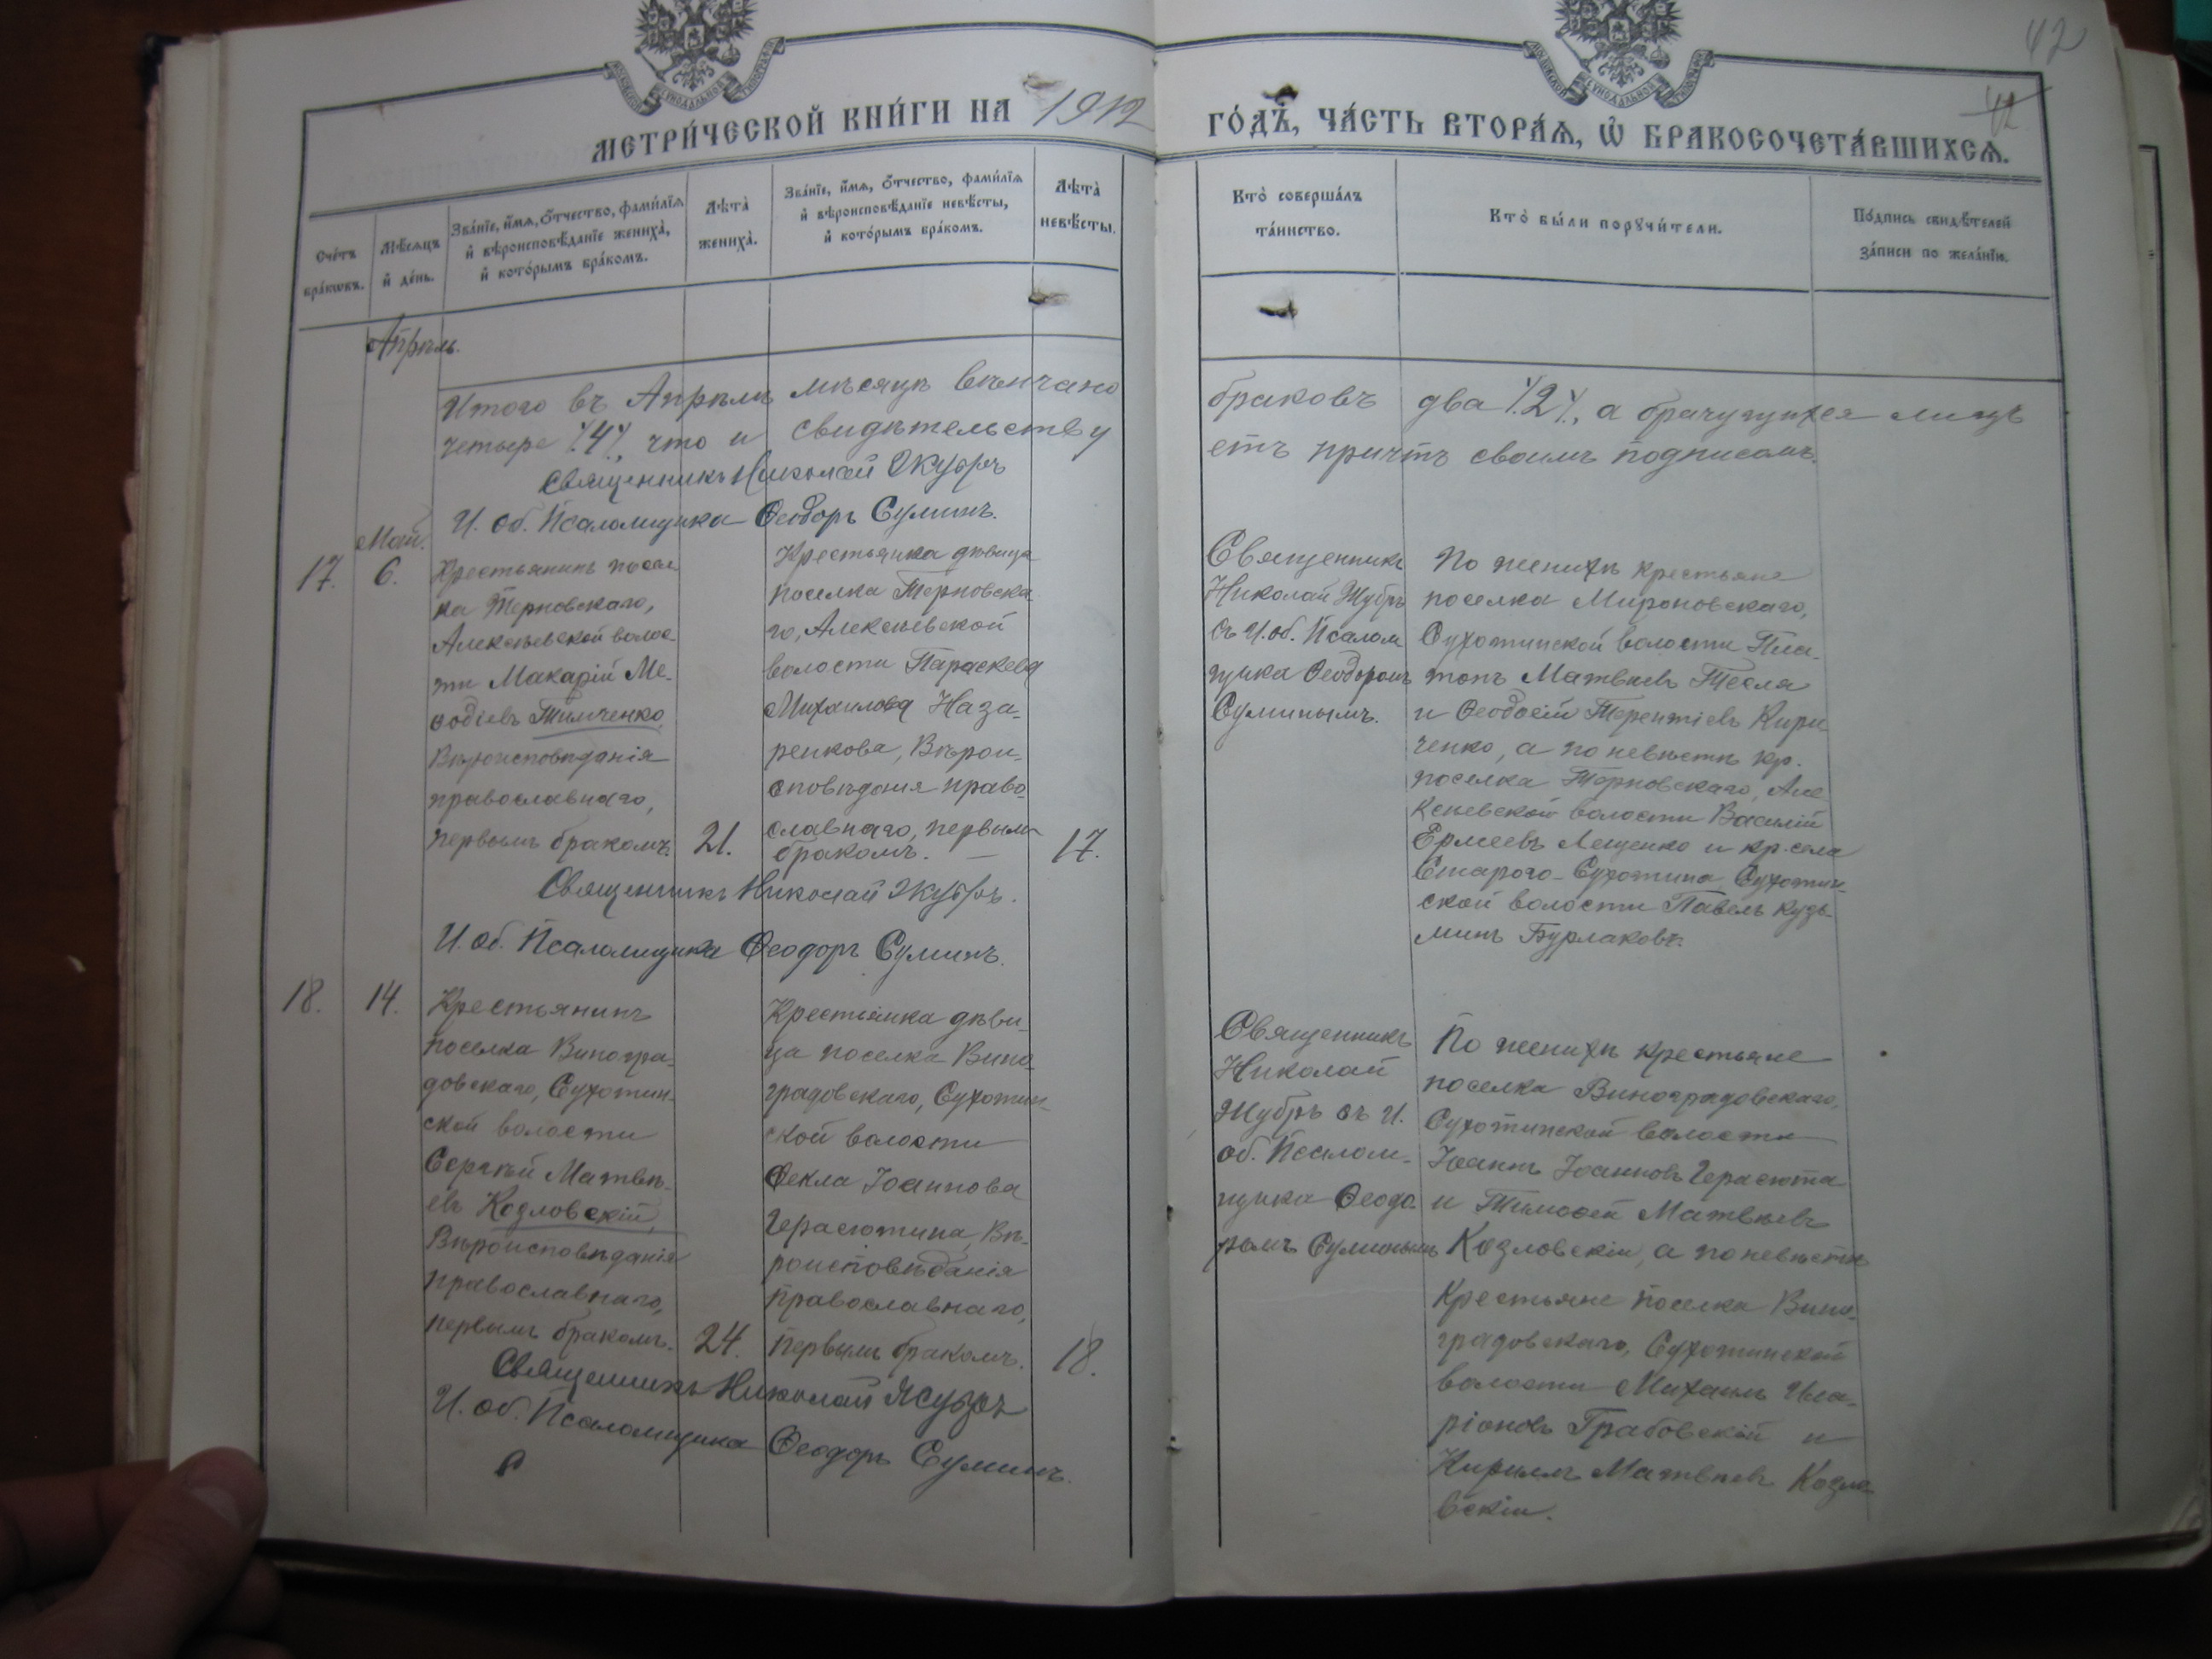 42
42
МЕТРИ́ЧЕСКОЙ КНИ́ГИ НА 1912 ГО́ДЪ, ЧА́СТЬ ВТОРА́Ѧ, Ѡ БРАКОСОЧЕТА́ВШИХСѦ.
Сче́тъ
бра́кѡвъ.
Мѣ́сяцъ
и҆ де́нь.
Зва́нїе, и҆́мѧ, ѻ҆́тчество, фами́лїѧ
и҆ вѣроисповѣ́данїе жениха̀,
и҆ кото́рымъ бра́комъ.
Лѣта̀
жениха̀.
Зва́нїе, и҆́мѧ, ѻ҆́тчество, фами́лїѧ
и҆ вѣроисповѣ́данїе невѣ́сты,
и҆ кото́рымъ бра́комъ.
Лѣта̀
невѣ́сты.
Кто̀ соверша́лъ
та́инство.
Кто̀ бы́ли порꙋчи́тели.
По́дпись свидѣ́телей
за́писи по жела́нїю.
Апрѣль.
Итого въ Апрѣлѣ мѣсяцѣ вѣнчано браковъ два ٪2٪, а брачущихся лицъ
четыре ٪4٪, что и свидѣтельствуетъ причтъ своимъ подписомъ.
Священникъ Николай Жубръ
И. об. Псаломщика Ѳеодоръ Суминъ.
Май.
17.
6.
Крестьянинъ посел
ка Терновскаго,
Алексѣевской волос
ти Макарій Ме-
ѳодіевъ Тимченко,
Вѣроисповѣданія
православнаго,
первымъ бракомъ.
21.
Крестьянка дѣвица
поселка Терновска-
го, Алексѣевской
волости Параскева
Михаилова Наза-
ренкова, Вѣрои-
сповѣданія право-
славнаго, первымъ
бракомъ. —
17.
Священникъ
Николай Жубръ
съ И. об. Псалом
щика Ѳеодоромъ
Суминымъ.
По женихѣ крестьяне
поселка Мироновскаго,
Сухотинской волости Пла-
тонъ Матвѣевъ Тесля
и Ѳеодосій Терентіевъ Кири-
ченко, а по невѣстѣ кр.
поселка Терновскаго, Але-
ксѣевской волости Василій
Ермеевъ Лещенко и кр. села
Стараго-Сухотина Сухотин-
ской волости Павелъ Кузь-
минъ Бурлаковъ.
Священникъ Николай Жубръ.
И. об. Псаломщика Ѳеодоръ Суминъ.
18.
14.
Крестьянинъ
поселка Виногра-
довскаго, Сухотин-
ской волости
Сергѣй Матвѣ-
евъ Козловскій,
Вѣроисповѣданія
православнаго,
первымъ бракомъ.
24.
Крестьянка дѣви-
ца поселка Вино-
градовскаго, Сухотин-
ской волости
Ѳекла Іоаннова
Герасютина, Вѣ-
роисповѣданія
православнаго,
первымъ бракомъ.
18.
Священникъ
Николай
Жубръ съ И.
об. Псалом-
щика Ѳеодо-
ромъ Суминымъ
По женихѣ крестьяне
поселка Виноградовскаго,
Сухотинской волости
Іоаннъ Іоанновъ Герасюта
и Тимоѳей Матвѣевъ
Козловскіи, а по невѣстѣ
Крестьяне поселка Вино-
градовскаго, Сухотинской
волости Михаилъ Ила-
ріоновъ Грабовскій и
Кириллъ Матвѣевъ Козло-
вскіи.
Священникъ Николай Жубръ
И. об. Псаломщика Ѳеодоръ Суминъ.